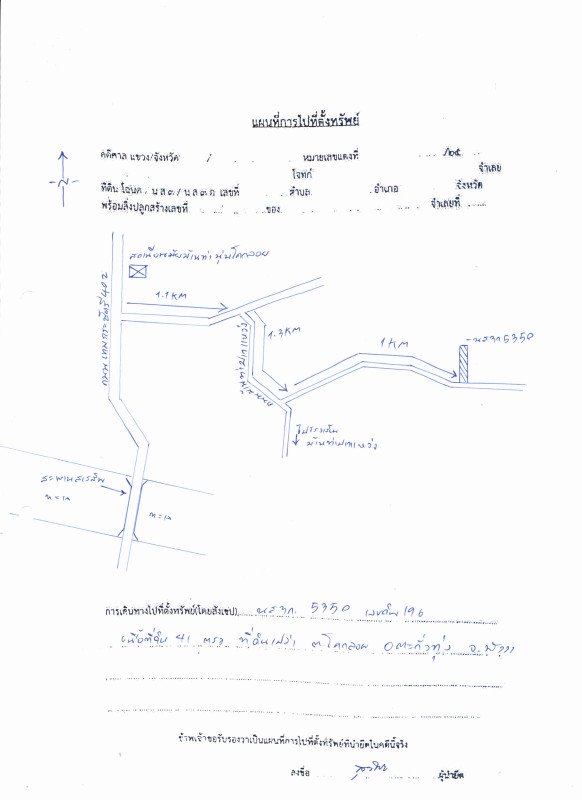 แผนที่การไปที่ตั้งทรัพย์
คดีศาล แขวง/จังหวัด / หมายเลขแดงที่ /๒๕
โจทก์ จำเลย
ที่ดิน โฉนด / น ส ๓ / น ส ๓ ก เลขที่ ตำบล อำเภอ จังหวัด
พร้อมสิ่งปลูกสร้างเลขที่ ของ จำเลยที่
-N-
1.1 KM
ถนน เทพกระษัตรี 402
1.3 KM
1 KM
นส3ก 5350
ไปโรงเรียน
สะพานสารสิน
ทะเล
ทะเล
การเดินทางไปที่ตั้งทรัพย์(โดยสังเขป) นส 3ก. 5350 เลขดิน 196
เนื้อที่ดิน 41 ตรว ที่ดินเปล่า ต โคกกลอย อ ตะกั่วทุ่ง จ. พังงา
ข้าพเจ้าขอรับรองว่าเป็นแผนที่การไปที่ตั้งทรัพย์ที่นำยึดในคดีนี้จริง
ลงชื่อ ผู้นำยึด